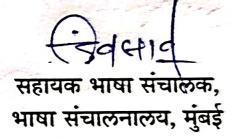 सहायक भाषा संचालक,
भाषा संचालनालय, मुंबई